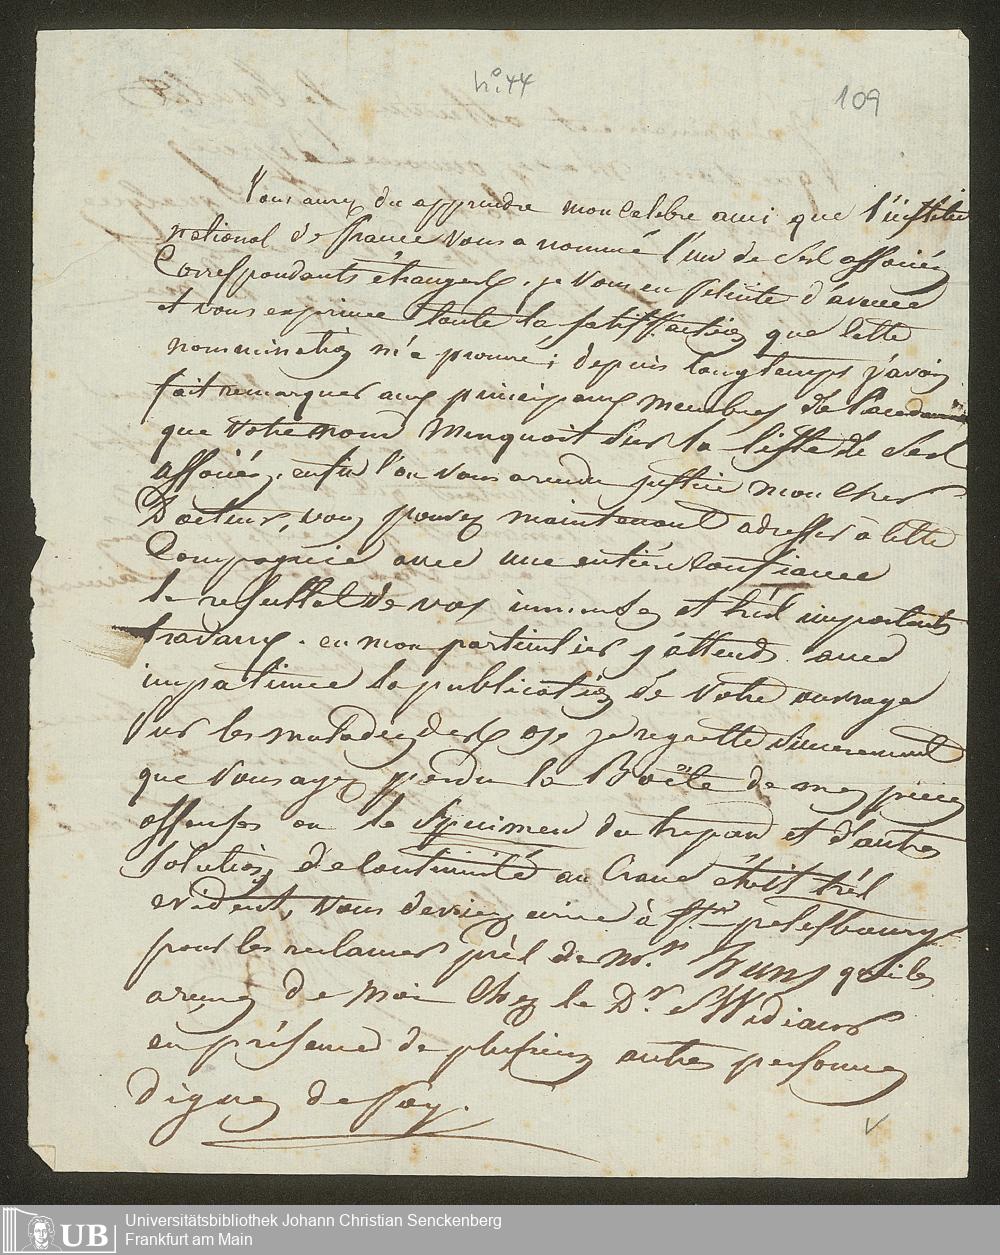 n.º 44
109
Vous aurez du apprendre mon Celebre ami que l'institut
national de france vous a nommé l'un de Ses associés
Correspondants étrangers, je vous en felicite d'avance
et vous exprime toute la satisfaction que Cette
nommination m'a prouvé; depuis longtemps j'avois
fait remarquer aux principaux membres de l'academie
que votre nom Manquoit Sur la liste de Ses
associés. enfin l'on vous a rendu justice mon Cher
Docteur, vous pouvez maintenant adresser à Cette
Compagnie avec une entiere Confiance
le resultat de vos immenses et très importants
travaux. en mon particulier j'attends avec
impatience la publication de votre ouvrage
Sur les maladies des os, je regrette Sincerement
que vous ayez perdu la Boëte de mes pieces
osseuses ou le Specimen du trepan et d'autres
Solutions de Continuité au Crane étoit très
evident, vous devriez ecrire à St. petersbourg
pour les reclamer près de Mr. qui les
a reçues de Moi Chez le Dr.
en présence de plusieurs autres personnes
dignes de foy.
V
UB
Universitätsbibliothek Johann Christian Senckenberg
Frankfurt am Main